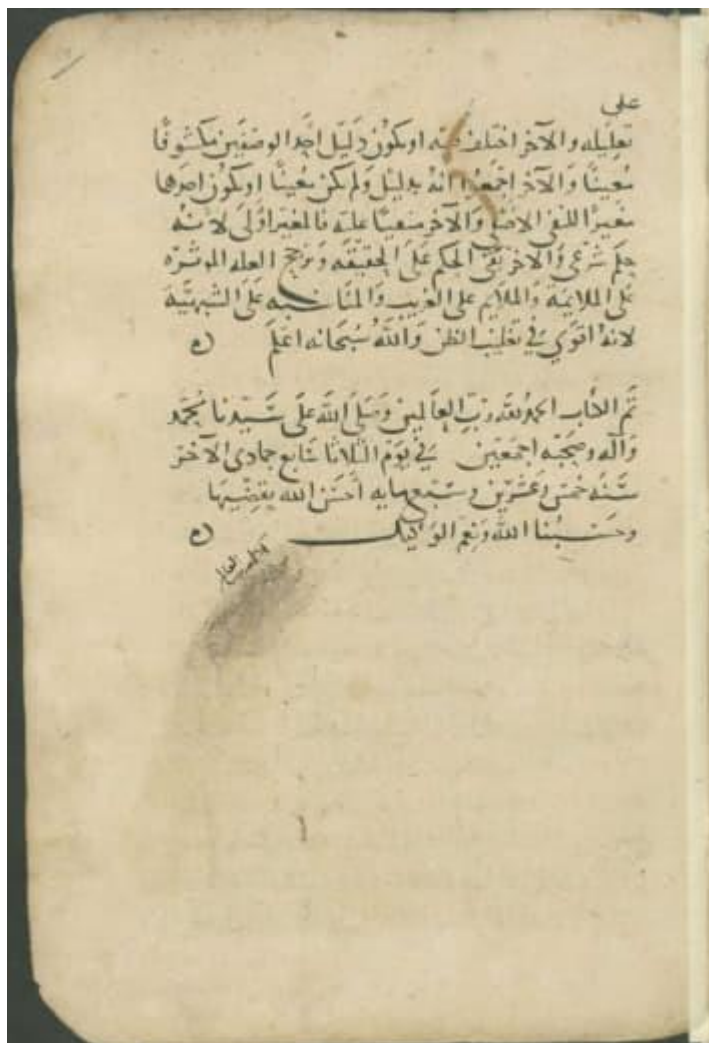 على
تعليله والآخر اختلف فيه او يكون دليل احد الوصفين مكشوفا
معينا والآخر اجمعوا انه بدليل ولم يكن معينا او يكون احدهما
مغيرا للنفي الاصلي والآخر مبقيا عليه فالمغير اولى لانه
حكم شرعي والآخر بقى الحكم على الحقيقه وترجح العله الموثره
على الملايمة والملايم على الغريب والمناسبه على الشبهيه
لانه اقوى في تغليب الظن والله سبحانه اعلم
تم الكتاب الحمد لله رب العالمين وصلى الله على سيدنا محمد
وآله وصحبه اجمعين في يوم الثلاثا سابع جمادى الآخر
سنه خمس وعشرين وسبعمايه أحسن الله بقضيها
وحسبنا الله ونعم الوكيل